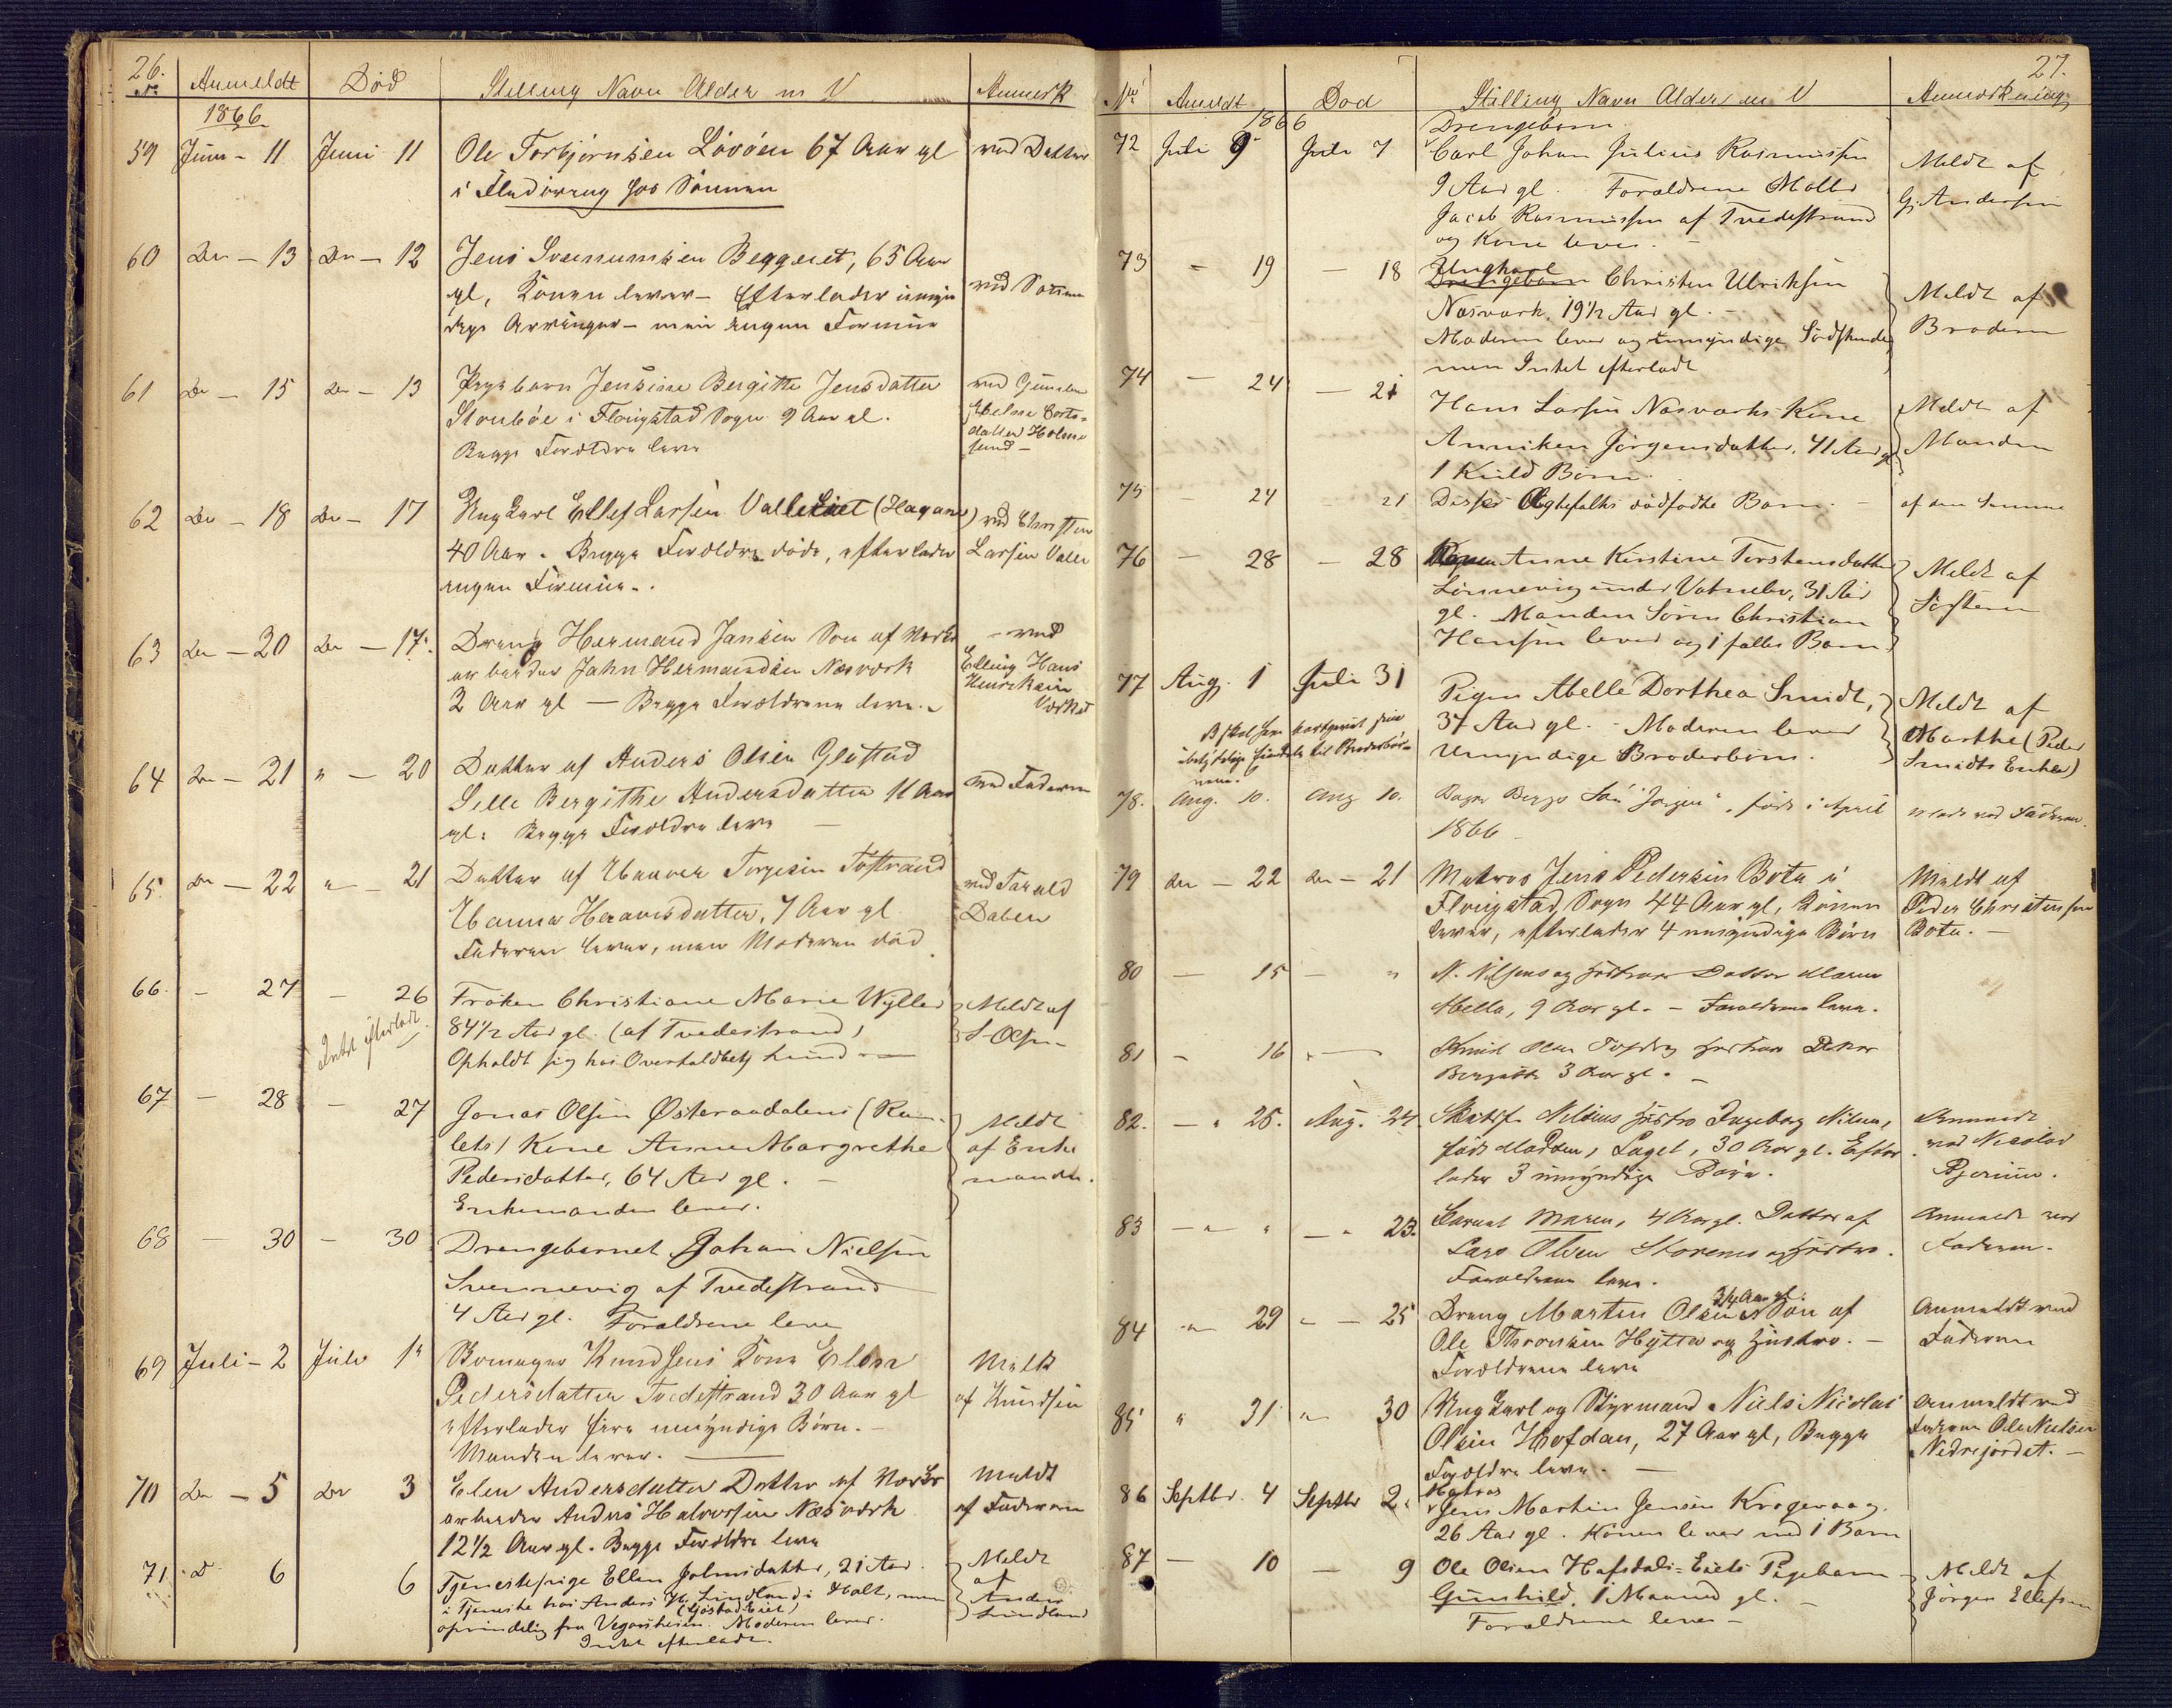 26.
No Anmeldt Död Stilling Navn Alder m V Anmerk
1866.
59 Juni - 11 Juni 11 Ole Torbjørnsen Løvøen 67 Aar gl ved Datter
i Fladøraug hos Sønnen
60 Do - 13 Do - 12 Jens Svenumsen 65 Aar
gl, Konen lever - Efterlader ved Sønnen
Arvinger - men ingen Formue
61 Do - 15 Do - 13 Pigebarn Jensine Bergitte Jensdatter ved Gunder
Stoubøe i Flougstad Sogn 9 Aar gl.
Begge Forældre leve datter Holme
sund -
62 Do - 18 Do - 17 Ungkarl Ellef Larsen Valle Eiet (Hagane) ved Christen
40 Aar. Begge Forældre døde, efterlader Larsen Valle
ingen Formue.
63 Do - 20 Do - 17 Dreng Hermand Jansen Søn af Verks - ved
arbeider Jahn Hermandsen Næsverk Elling Hans
Henriksen
2 Aar gl - Begge Forældrene leve. Verket
64 Do - 21 " - 20 Datter af Anders Olsen Gløstad
Sille Bergithe Andersdatter 11 Aar ved Faderen
gl. Begge Forældre leve -
65 Do - 22 " - 21 Datter af Torgesen Tostrand ved Tarald
Hanna 7 Aar gl Daben
Faderen lever, men Moderen död
66 - 27 - 26 Frøken Christiane Marie Wyller Meldt af
Intet efterladt. 84 1/2 Aar gl. (af Tvedestrand) S. Olsen
Opholdt sig hos Overtoldbetj Lund
67 - 28 - 27 Jonas Olsen Østeraadalens (Ram- Meldt
lets) Kone Anne Margrethe af Enke
Pedersdatter, 64 Aar gl. - manden.
Enkemanden lever.
68 - 30 - 30 Drengebarnet Johan Nielsen
Svennevig af Tvedestrand
4 Aar gl. Forældrene leve
69 Juli - 2 Juli 1 Knudsens Kone Elen Meldt
Pedersdatter Tvedestrand 30 Aar gl af Knudsen
efterlader fire umyndige Börn. -
Manden lever.
70 Do - 5 Do 3 Elen Andersdatter Datter af Verks Meldt
arbeider Anders Halvorsen Næsverk af Faderen
12 1/2 Aar gl. Begge Forældre leve
71. D 6 6 Tjenestepige Ellen Johnsdatter, 21 Aar Meldt
i Tjeneste hos Anders H. Lundland i Holt, men af
(Gjøstad Eiet) Anders
oprindelig fra Vegaarsheien. Moderen lever. Lundland
Intet efterladt.
27.
No Anmeldt Död Stilling Navn Alder m V Anmerkning
1866 Drengebarn
72 Juli 9 Juli 7 Carl Johan Julius Rasmussen Meldt af
9 Aar gl. Forældrene Møller G. Andersen
Jacob Rasmussen af Tvedestrand
og Kone lever. -
73 - 19 - 18 Ungkarl
Drengebarn Christen Ulriksen Meldt af
Næsverk. 19 1/2 Aar gl. - Broderen
Moderen lever og umyndige Södskende
men Intet efterladt
74 - 24 - 21 Hans Larsen Næsverks Kone Meldt af
Anniken Jörgensdatter, 41 Aar gl Manden
1 Kuld Börn.
75 - 24 - 21 Disse Ægtefolks dödfödte Barn. - af den Samme
76 - 28 - 28 Konen Anne Kirstine Torstensdatter Meldt af
Lönnevig under Vatnebu, 31 Aar Söstern
gl. Manden Sören Christian
Hansen lever og 1 fælles Barn
77 Aug. 1 Juli 31 Pigen Abelle Dorthea Smidt, Meldt af
37 Aar gl. - Moderen lever Marthe (Peder
Umyndige Broderbörn. Smidts Enke)
78. Aug. 10. Aug 10. Bager Bergs Sön "Jörgen", född i April ved Faderen.
1866 -
79 do - 22 do - 21 Matros Jens Pedersen Bota i Meldt af
Flougstad Sogn 44 Aar gl, Konen Peder Christensen
lever, efterlader 4 umyndige Börn Bota. -
80 - 15 - " N. Nilsens og Hustrues Datter Maren
Abella, 9 Aar gl. - Forældrene leve.
81 - 16 " - Knud Olsen Hustrues Datter
Bergitte 3 Aar gl. -
82. - " 25. Aug. 24. Nilsens Hustro Ingeborg Nilsen, Anmeldt
född Madsen, Laget, 30 Aar gl. Efter ved Nicolai
lader 3 umyndige Börn. Bjorum.
83 - " " - " 23. Barnet Maren, 4 Aar gl. Datter af Anmeldt ved
Lars Olsen og Hustro. Faderen.
Forældrene leve.
84 " 29 " - 25 3/4 Aar gl.
Dreng Marten Olsen Søn af Anmeldt ved
Ole Hytten og Hustro. - Faderen
Forældrene leve
85 " 31 " 30 Ungkarl og Styrmand Niels Nicolai Anmeldt ved
Olsen Hofdan, 27 Aar gl, Begge Faderen Ole Nielsen
Forældre leve. - Nedrejordet. -
86 Septbr. 4 Septbr 2. Matros
Jens Martin Jensen Krogevaag.
26 Aar gl. Konen lever med 1 Barn
87 - 10 - 9 Ole Olsen Hafsdals-Eiets Pigebarn Meldt af
Gunhild. 1 Maaned gl. - Jörgen Ellefsen
Forældrene lever -